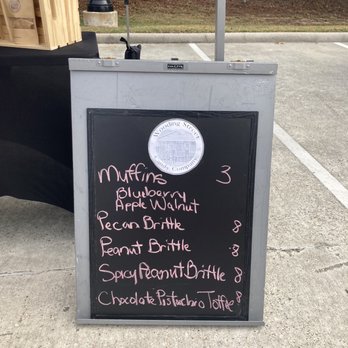 Wooding Street
Company
Muffins 3
Blueberry
Apple Walnut
Pecan Brittle 8
Peanut Brittle 8
Spicy Peanut Brittle 8
Chocolate Pistachio Toffee 8